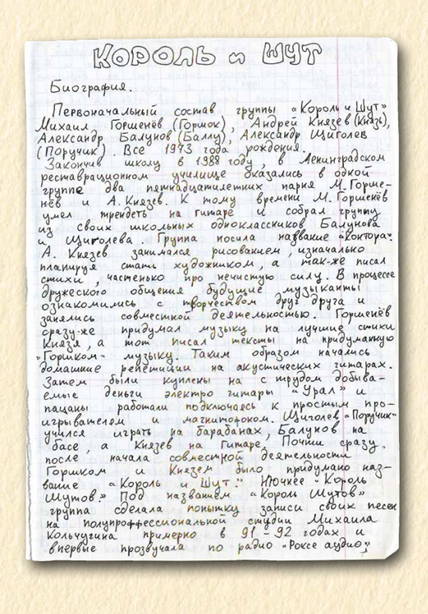 КОРОЛЬ и ШУТ
Биография.
Первоначальный состав группы "Король и Шут"
Михаил Горшенёв (Горшок), Андрей Князев (Князь),
Александр Балунов (Балу), Александр Щиголев
(Поручик). Все 1973 года рождения.
Закончив школу в 1988 году, в Ленинградском
реставрационном училище оказались в одной
группе два пятнадцатилетних парня М. Горше-
нёв и А. Князев. К тому времени М. Горшенёв
умел трендеть на гитаре и собрал группу
из своих школьных одноклассников Балунова
и Щиголева. Группа носила название "Контора".
А. Князев занимался рисованием, изначально
планируя стать художником, а так-же писал
стихи, частенько про нечистую силу. В процессе
дружеского общения будущие музыканты
ознакомились с творчеством друг друга и
занялись совместной деятельностью. Горшенёв
сразу-же придумал музыку на лучшие стихи
Князя, а тот писал тексты на придуманную
"Горшком" музыку. Таким образом начались
домашние репетиции на акустических гитарах.
Затем были куплены на с трудом добыва-
емые деньги электро гитары "Урал" и
пацаны работали подключаясь к простым про-
игрывателям и магнитофонам. Щиголев "Поручик"
учился играть на барабанах, Балунов на
басе, а Князев на гитаре. Почти сразу
после начала совместной деятельности
Горшком и Князем было придумано наз-
вание "Король и Шут".
"Король
Шутов" Под названием "Король Шутов"
группа сделала попытку записи своих песен
на полупроффессиональной студии Михаила
Кольчугина примерно в 91-92 годах и
впервые прозвучала по радио "Роксе аудио",